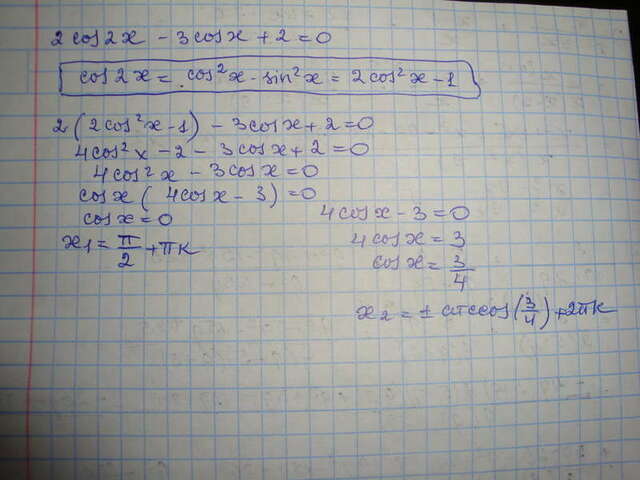 2cos2x - 3cosx + 2 = 0
cos2x = cos²x - sin²x = 2cos²x - 1
2(2cos²x - 1) - 3cosx + 2 = 0
4cos²x - 2 - 3cosx + 2 = 0
4cos²x - 3cosx = 0
cosx(4cosx - 3) = 0
cosx = 0
x₁ = π/2 + πк
4cosx - 3 = 0
4cosx = 3
cosx = 3/4
x₂ = ± arccos(3/4) + 2πк